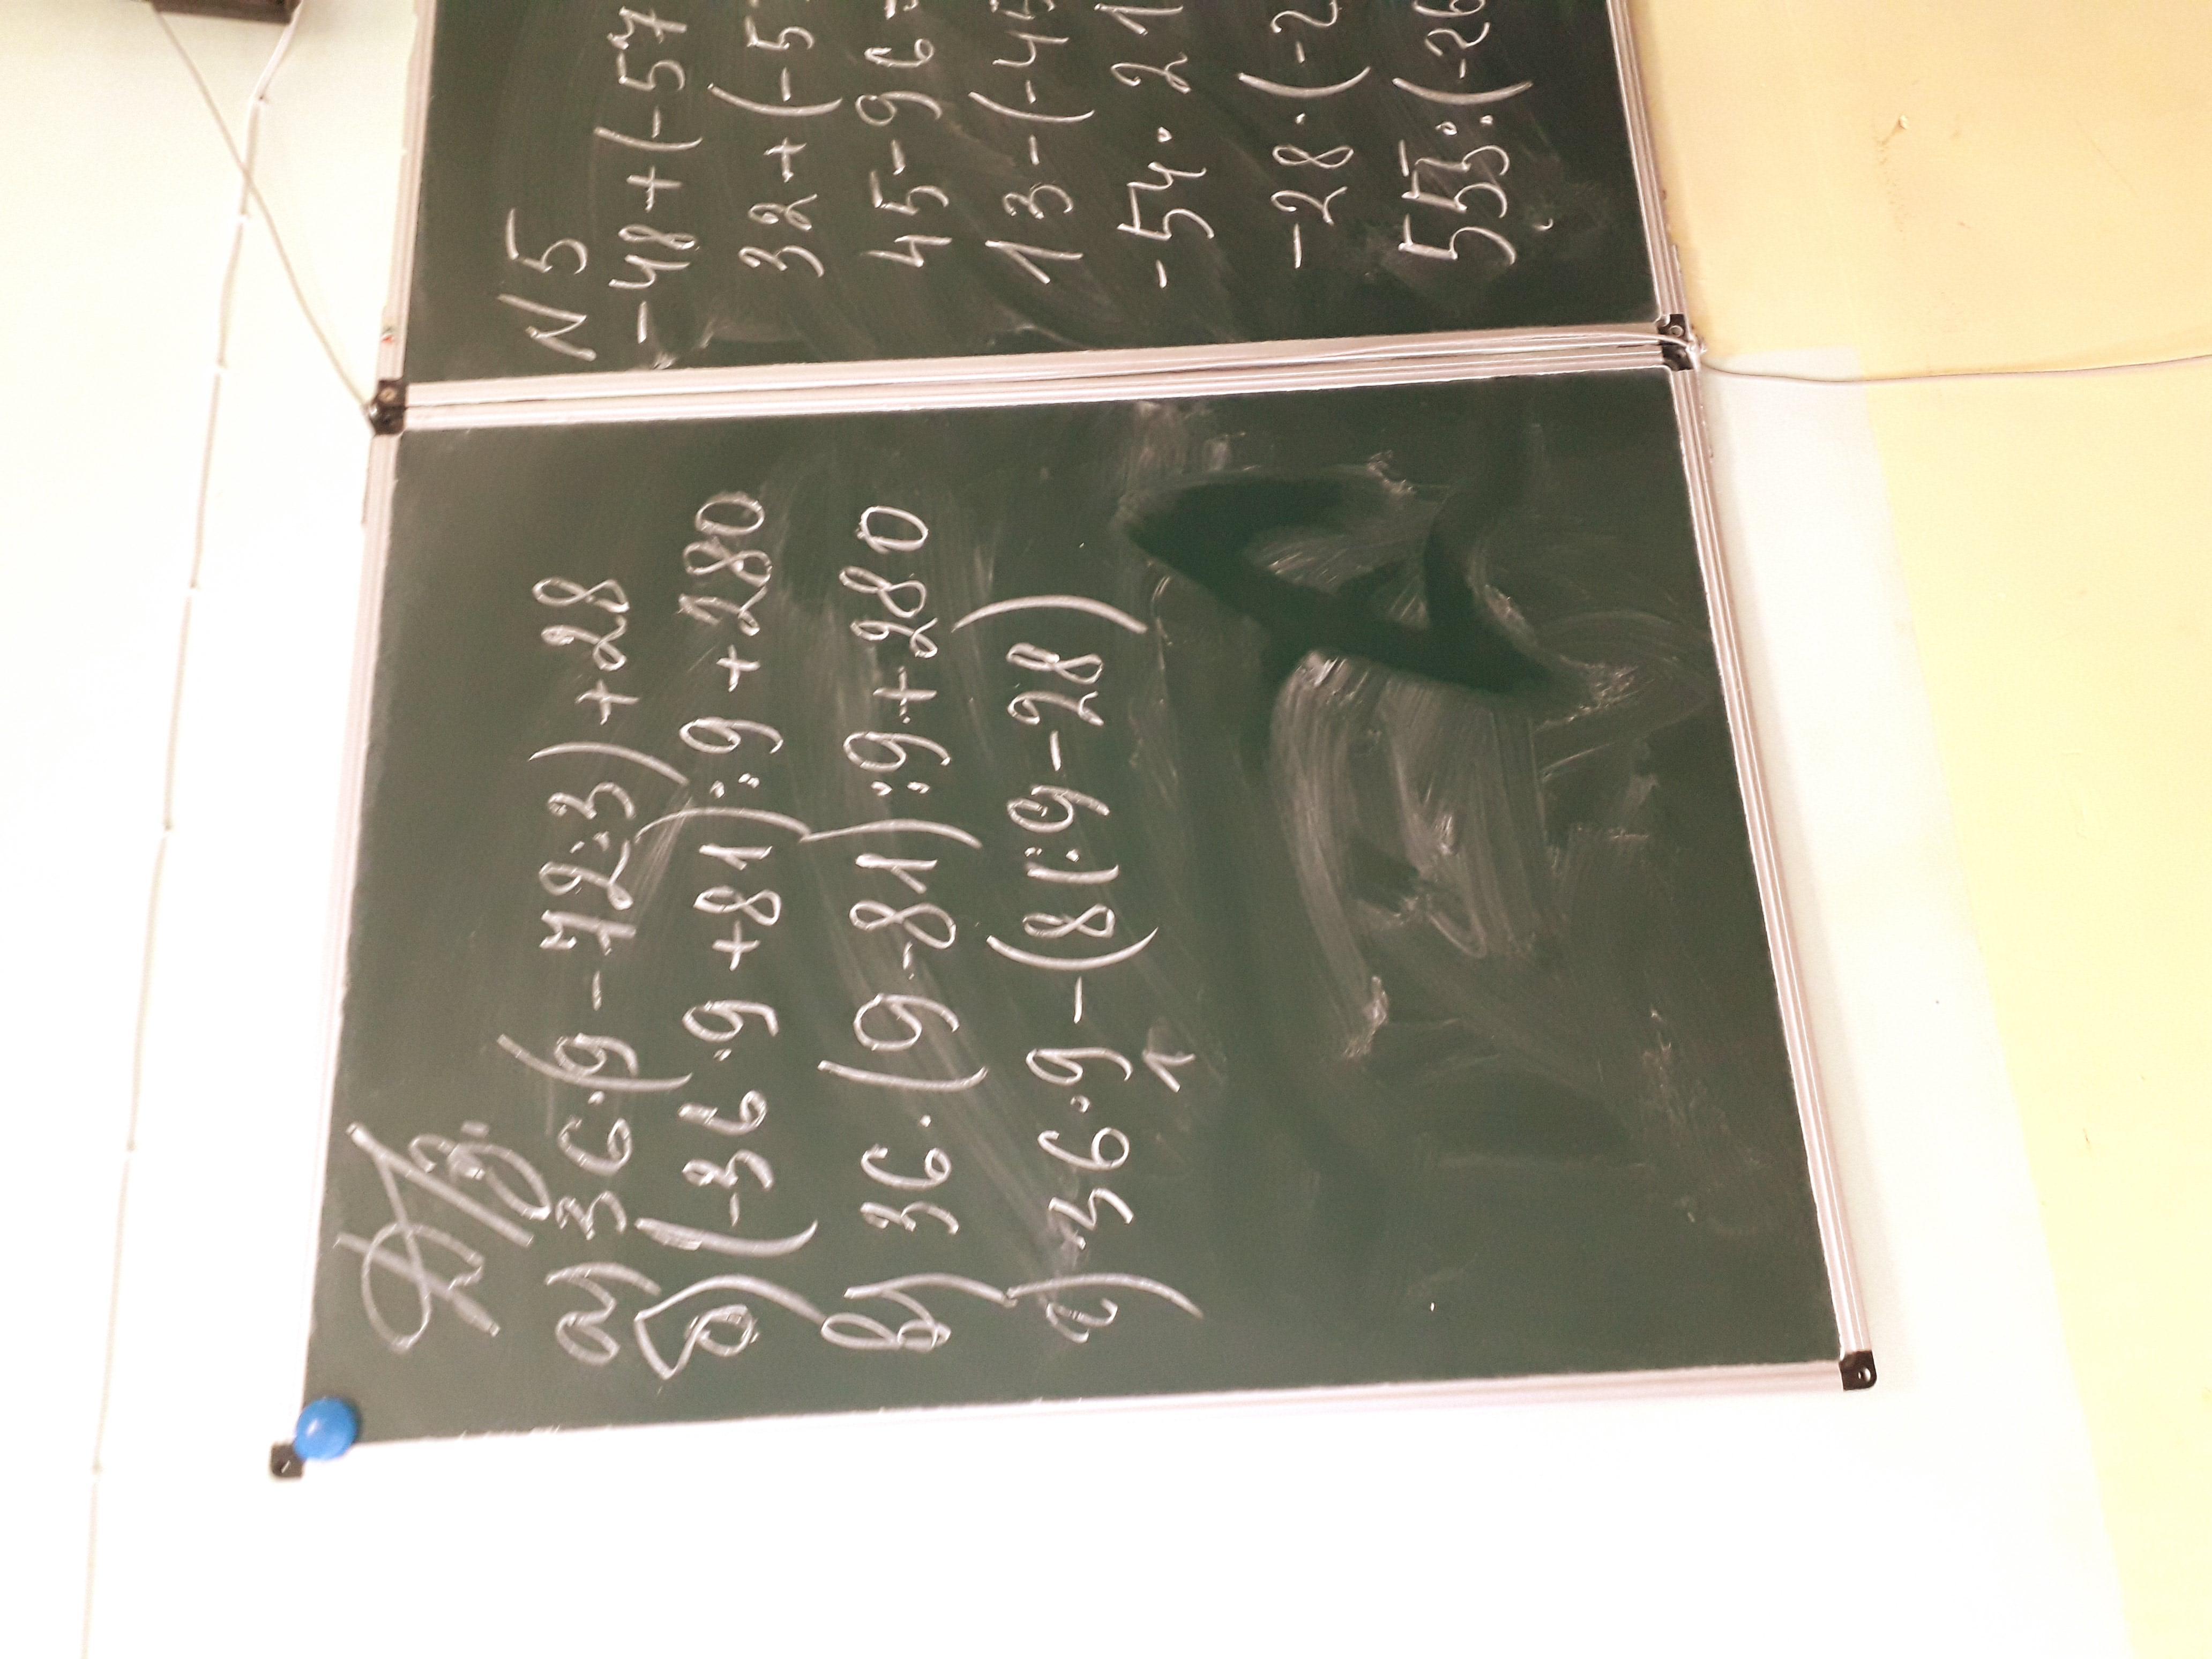 Д/з.
а) 36·(9 - 72:3) + 28
б) (-36·9 + 81):9 + 280
в) 36·(9 - 81):9 + 280
г) 36·9 - (81:9 - 28)
1
N 5
-48 + (-57
32 + (-5
45 - 96 =
13 - (-45
-54·21
-28·(-2
555:(-26